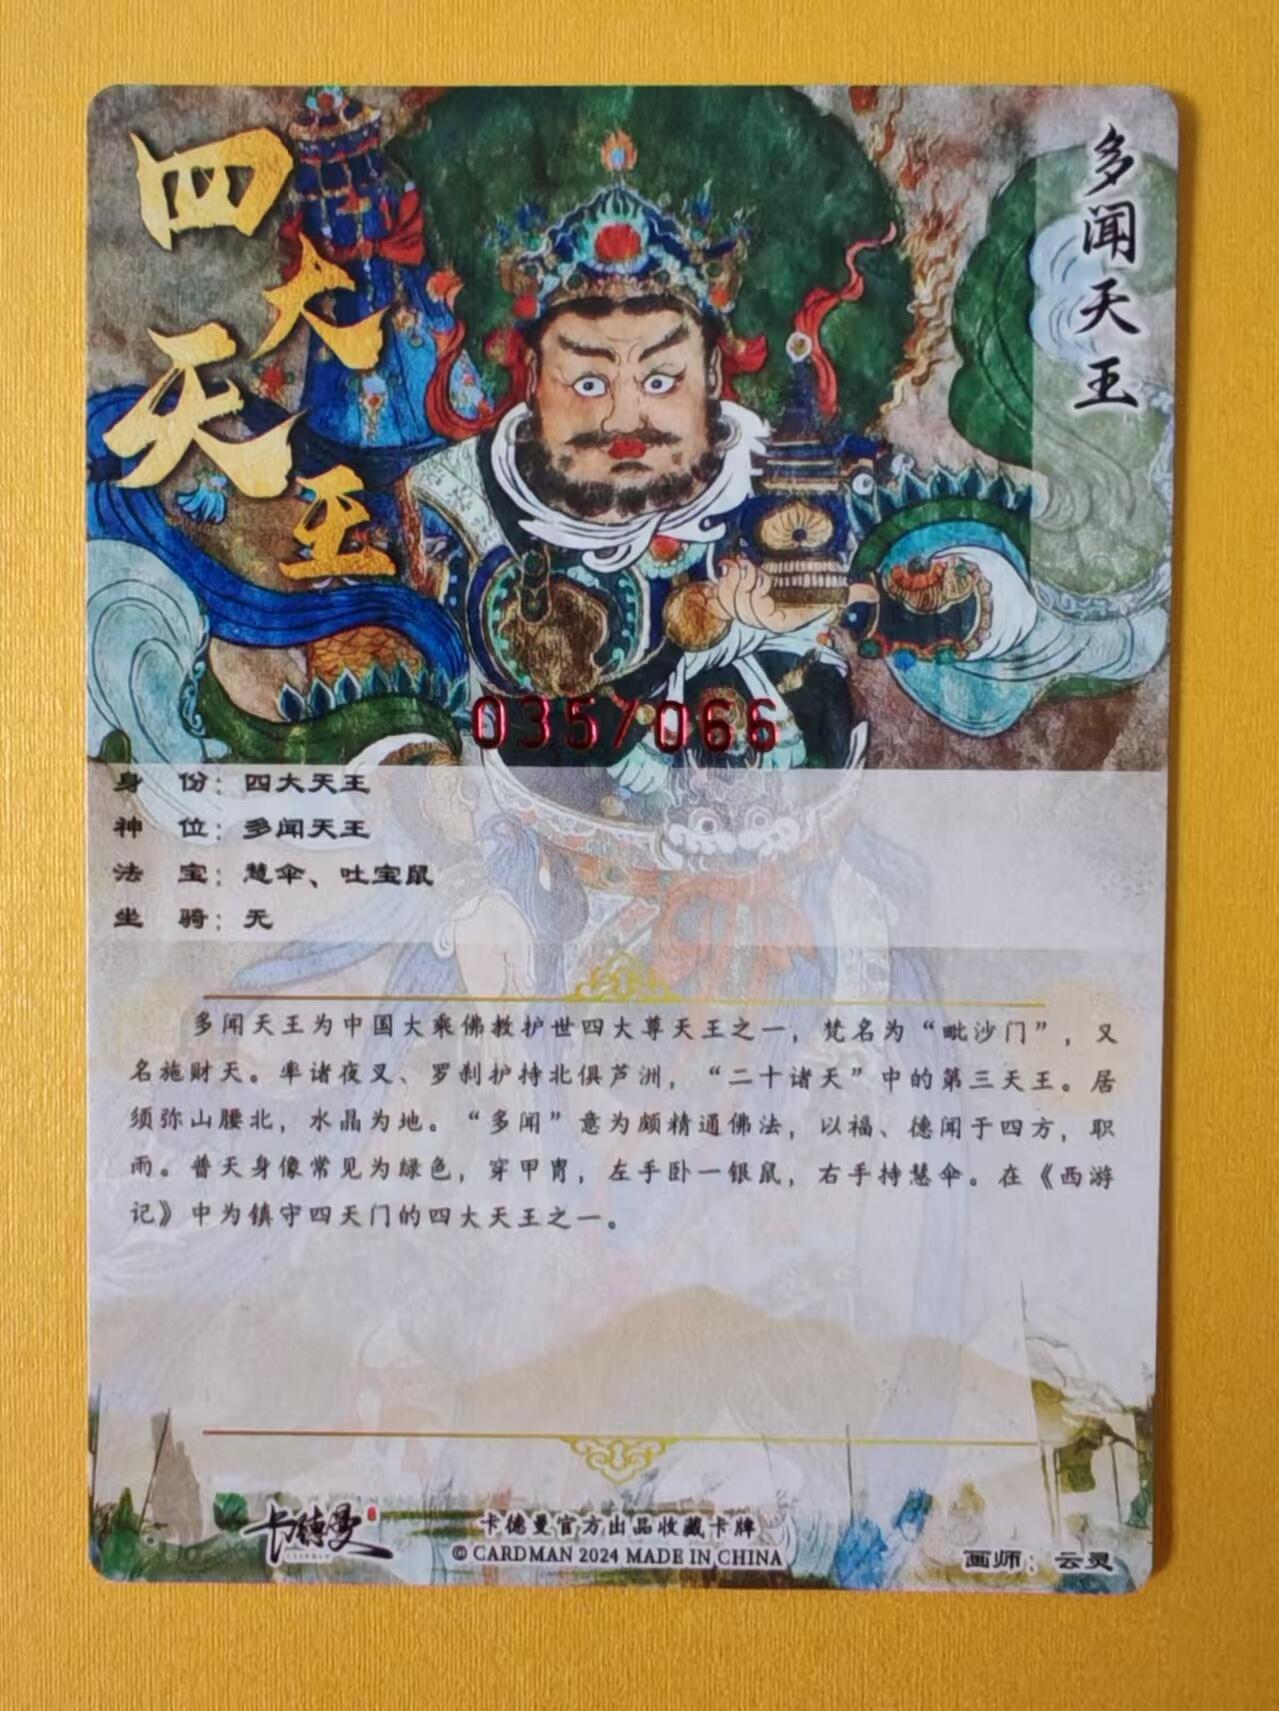 四大天王
多闻天王
035/066
身 份：四大天王
神 位：多闻天王
法 宝：慧伞、吐宝鼠
坐 骑：无
多闻天王为中国大乘佛教护世四大尊天王之一，梵名为“毗沙门”，又
名施财天。率诸夜叉、罗刹护持北俱芦洲，“二十诸天”中的第三天王。居
须弥山腰北，水晶为地。“多闻”意为颇精通佛法，以福、德闻于四方，职
雨。普天身像常见为绿色，穿甲胄，左手卧一银鼠，右手持慧伞。在《西游
记》中为镇守四天门的四大天王之一。
卡德曼
CARDMAN
卡德曼官方出品收藏卡牌
© CARDMAN 2024 MADE IN CHINA
画师：云灵